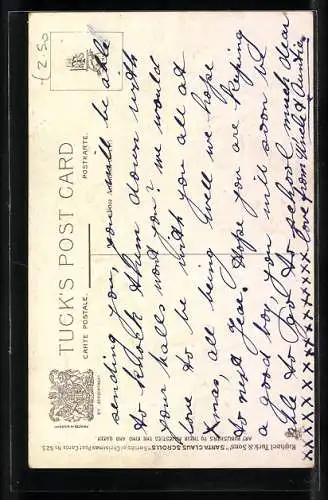 £2-50
TUCK'S POST CARD
CARTE POSTALE.
POSTKARTE.
BY APPOINTMENT.
sending you, you will be able
to knock them down with
your balls wont you? we would
love to be with you all at
Xmas, all being well we hope
to next Year. Hope you are keeping
a good boy, you will soon be
able to go to school, much dear
XXXXXXXXXX Love from Uncle & Auntie.
Raphael Tuck & Sons' "SANTA CLAUS SCROLLS" Series of Christmas Post Cards No. 525.
ART PUBLISHERS TO THEIR MAJESTIES THE KING AND QUEEN